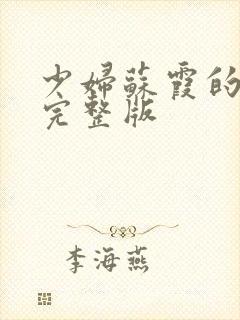 少婦蘇霞的
完整版
李海燕